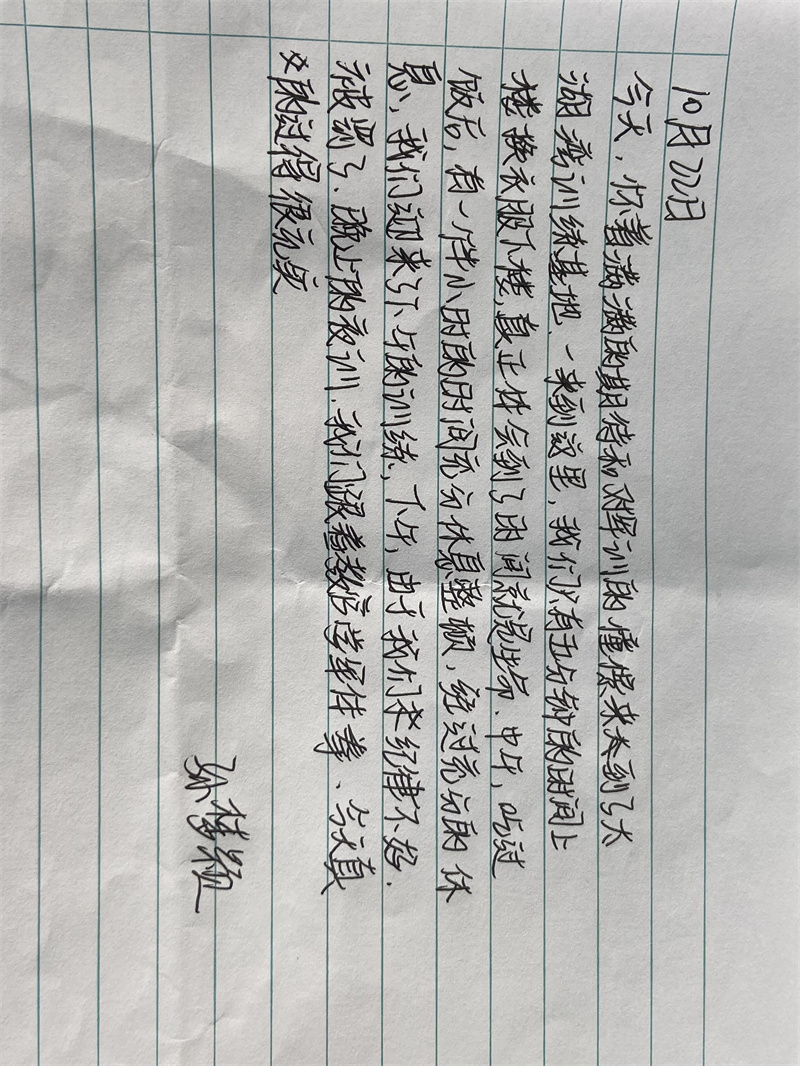 10月22日
今天，怀着满满的期待和对军训的憧憬来到了太
湖湾训练基地．一来到这里，我们只有五分钟的时间上
楼换衣服下楼，真正体会到了时间就是生命．中午，吃过
饭后，有一个半小时的时间充分休息整顿．经过充分的休
息，我们迎来了下午的训练，下午，由于我们纪律不好．
被罚了．晚上的夜训．我们跟着教官学军体拳．今天真
的过得很充实
孙梦颖